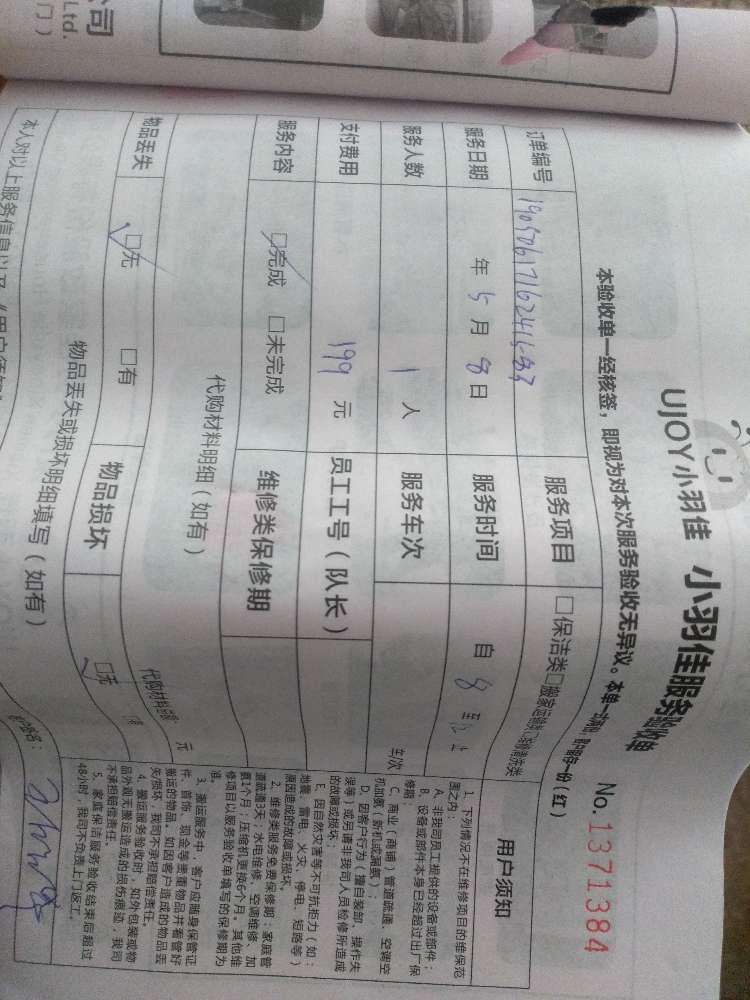 公司
Ltd.
门）
UJOY小羽佳 小羽佳服务验收单
本验收单一经核签，即视为对本次服务验收无异议。
（红）
No.1371384
订单编号
服务项目 □保洁类□搬家运输类
服务日期 年 5 月 8 日 服务时间 自 8
服务人数 1 人 服务车次 车/次
支付费用 199 元 员工工号（队长）
服务内容 □完成 □未完成 维修类保修期
代购材料明细（如有） 元
物品丢失 □无 □有 物品损坏 □无
物品丢失或损坏明细填写（如有）
本人对以上服务信息以及《用户须知》
用户须知
1、下列情况不在维修项目的维保范
围之内：
A、非我司员工提供的设备或部件；
B、设备或部件本身已经超过出厂保
修期；
C、商业（商铺）管道疏通、空调空
机加氟（新机或漏氟）；
D、因客户行为（擅自装部、操作失
误等）或另请非我司人员检修所造成
的故障或损坏；
E、因自然灾害等不可抗拒力（如：
地震、雷电、火灾、停电、短路等）
原因造成的故障或损坏。
2、维修类服务免费保修期：家庭管
道疏通3天；水电维修、空调维修、加
氟1个月；压缩机更换6个月。其他维
修项目以服务验收单填写的保修期为
准。
3、搬运服务中，客户应随身保管证
件、首饰、现金等贵重物品并看管好
搬运的物品。如因客户造成的物品丢
失/损坏，我司不承担赔偿责任。
4、搬运服务验收时，如外包装或物
品外观无搬运造成的损伤痕迹，我司
不承担赔偿责任。
5、家庭保洁服务验收结束后超过
48小时，我司不负责上门返工。